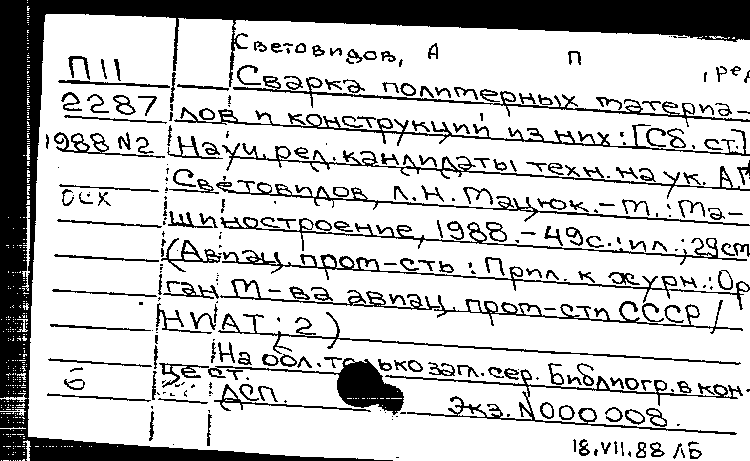 Световидов, А П , ред
П11 Сварка полимерных материа-
2287 лов и конструкций из них: [Сб. ст.]
1988 N2 Науч. ред. кандидаты техн. наук. А.П
Световидов, Л.Н. Мацюк. – М.: Ма-
осх шиностроение, 1988. – 49с.: ил.; 29см
(Авиац. пром-сть: Прил. к журн.: Ор
ган М-ва авиац. пром-сти СССР /
НИАТ; 2)
На обл. только загл. сер. Библиогр. в кон-
це ст.
б ДСП. Экз. N000008.
18.VII.88 ЛБ